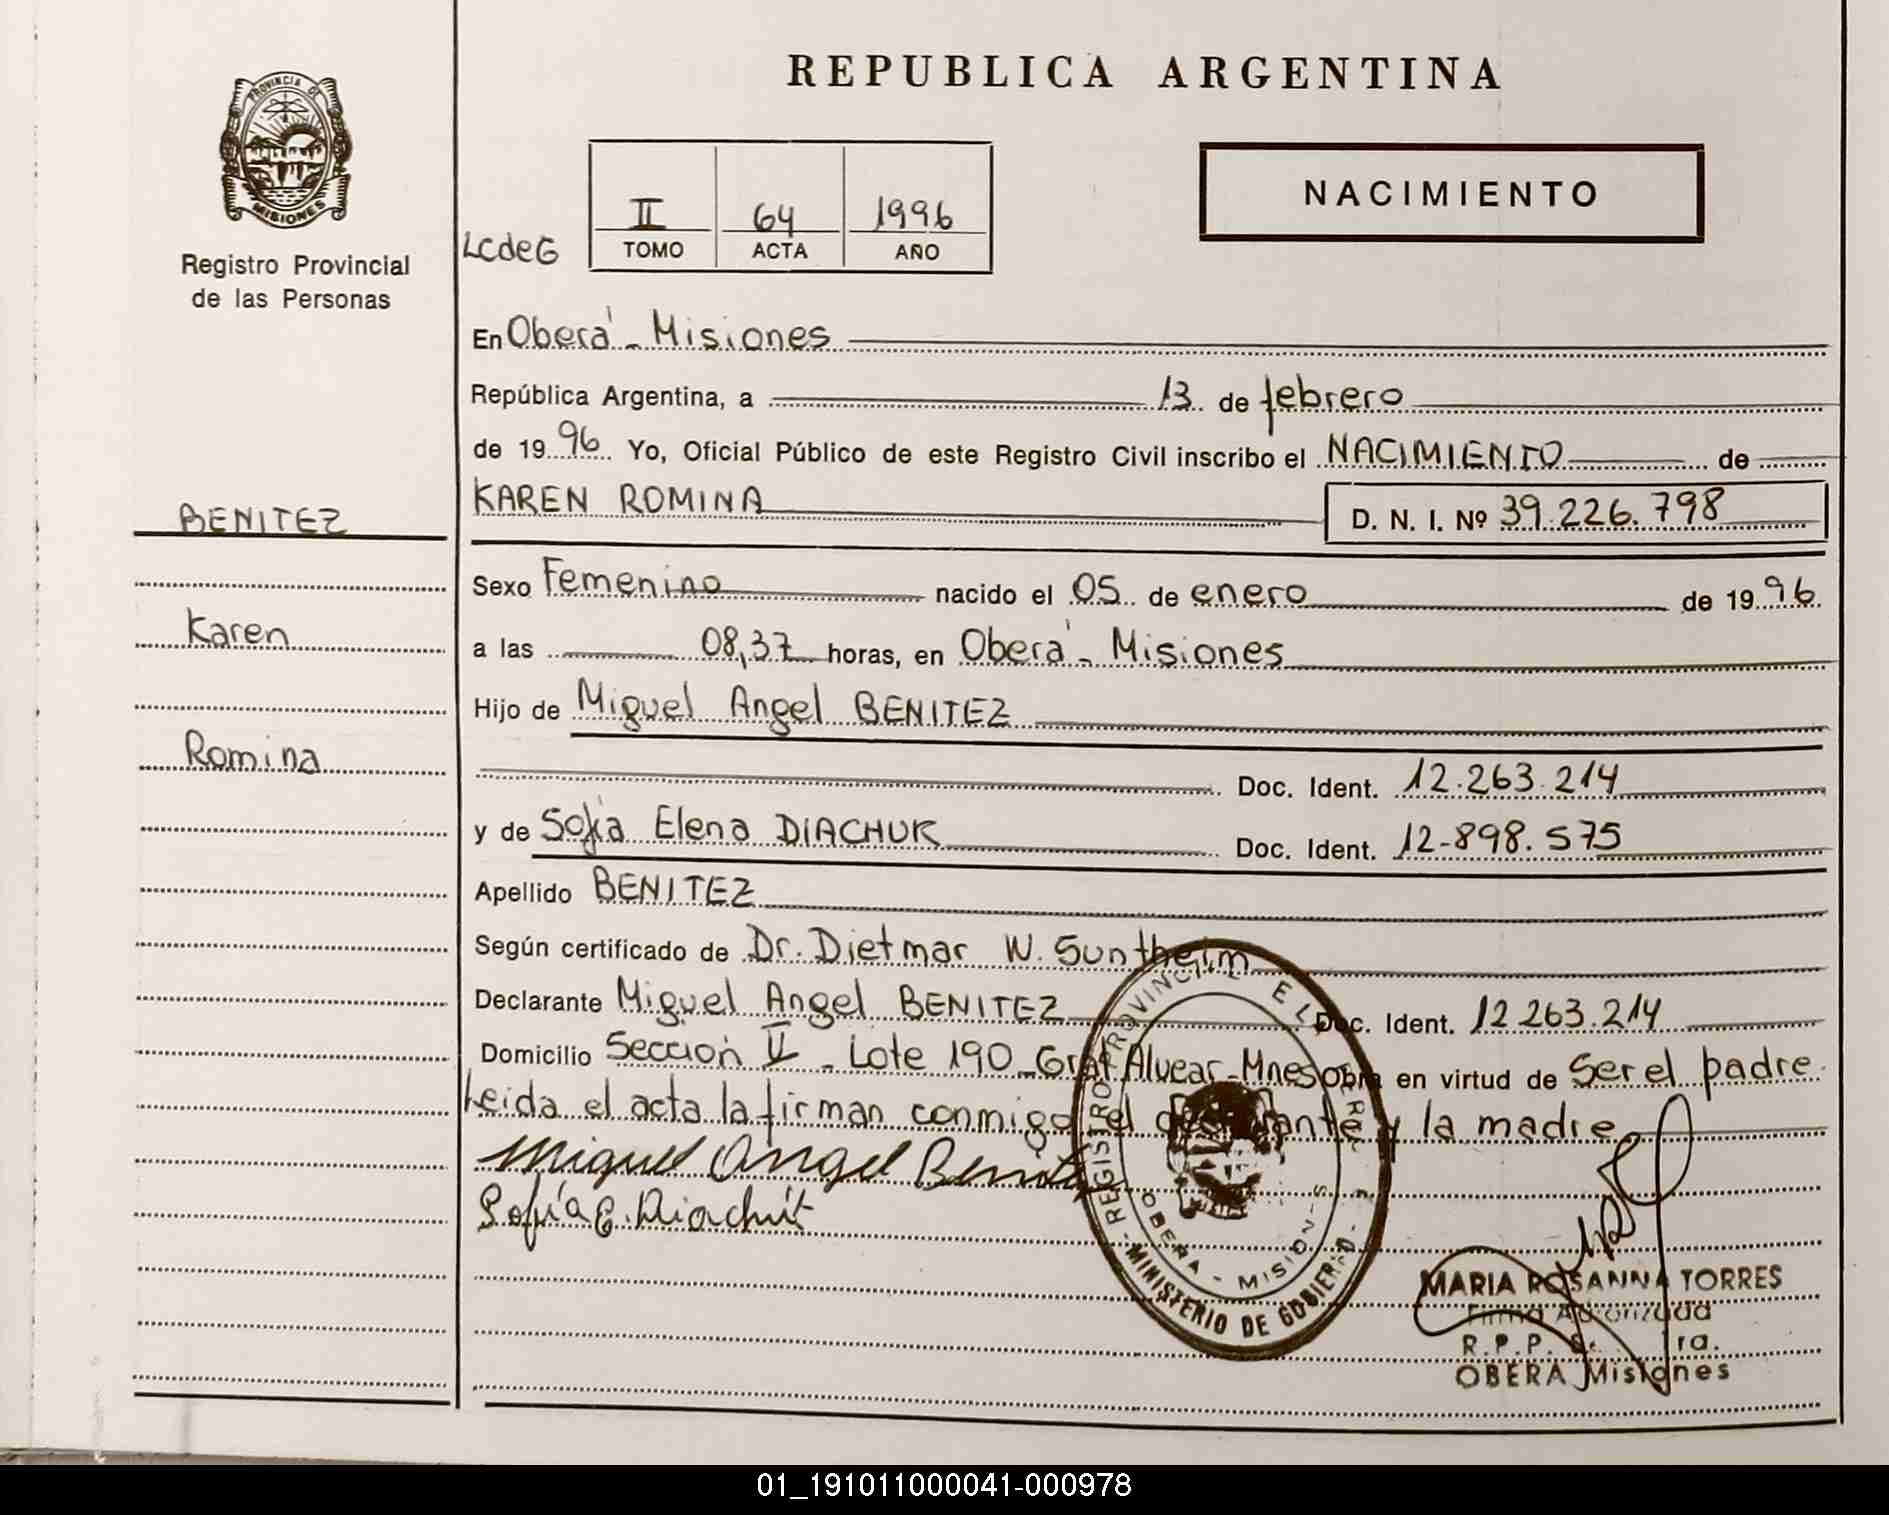 REPUBLICA ARGENTINA
PROVINCIA DE
MISIONES
Registro Provincial
de las Personas
LCdeG
II 64 1996
TOMO ACTA AÑO
NACIMIENTO
En Oberá - Misiones
República Argentina, a 13 de febrero
de 1996 Yo, Oficial Público de este Registro Civil inscribo el NACIMIENTO de
KAREN ROMINA D. N. I. Nº 39.226.798
BENITEZ
Karen
Romina
Sexo Femenino nacido el 05 de enero de 1996
a las 08,37 horas, en Oberá - Misiones
Hijo de Miguel Angel BENITEZ
Doc. Ident. 12.263.214
y de Sofia Elena DIACHUK Doc. Ident. 12-898.575
Apellido BENITEZ
Según certificado de Dr. Dietmar W. Suntheim
Declarante Miguel Angel BENITEZ Doc. Ident. 12 263.214
Domicilio Sección V - Lote 190 - Gral Alvear - Mnes obra en virtud de ser el padre.
Leida el acta la firman conmigo el declarante y la madre
Miguel Angel Benitez
Sofía E. Diachuk
REGISTRO PROVINCIAL
MINISTERIO DE GOBIERNO
OBERA - MISIONES
MARIA ROSANNA TORRES
Firma Autorizada
R.P.P.
OBERA Misiones
01_191011000041-000978